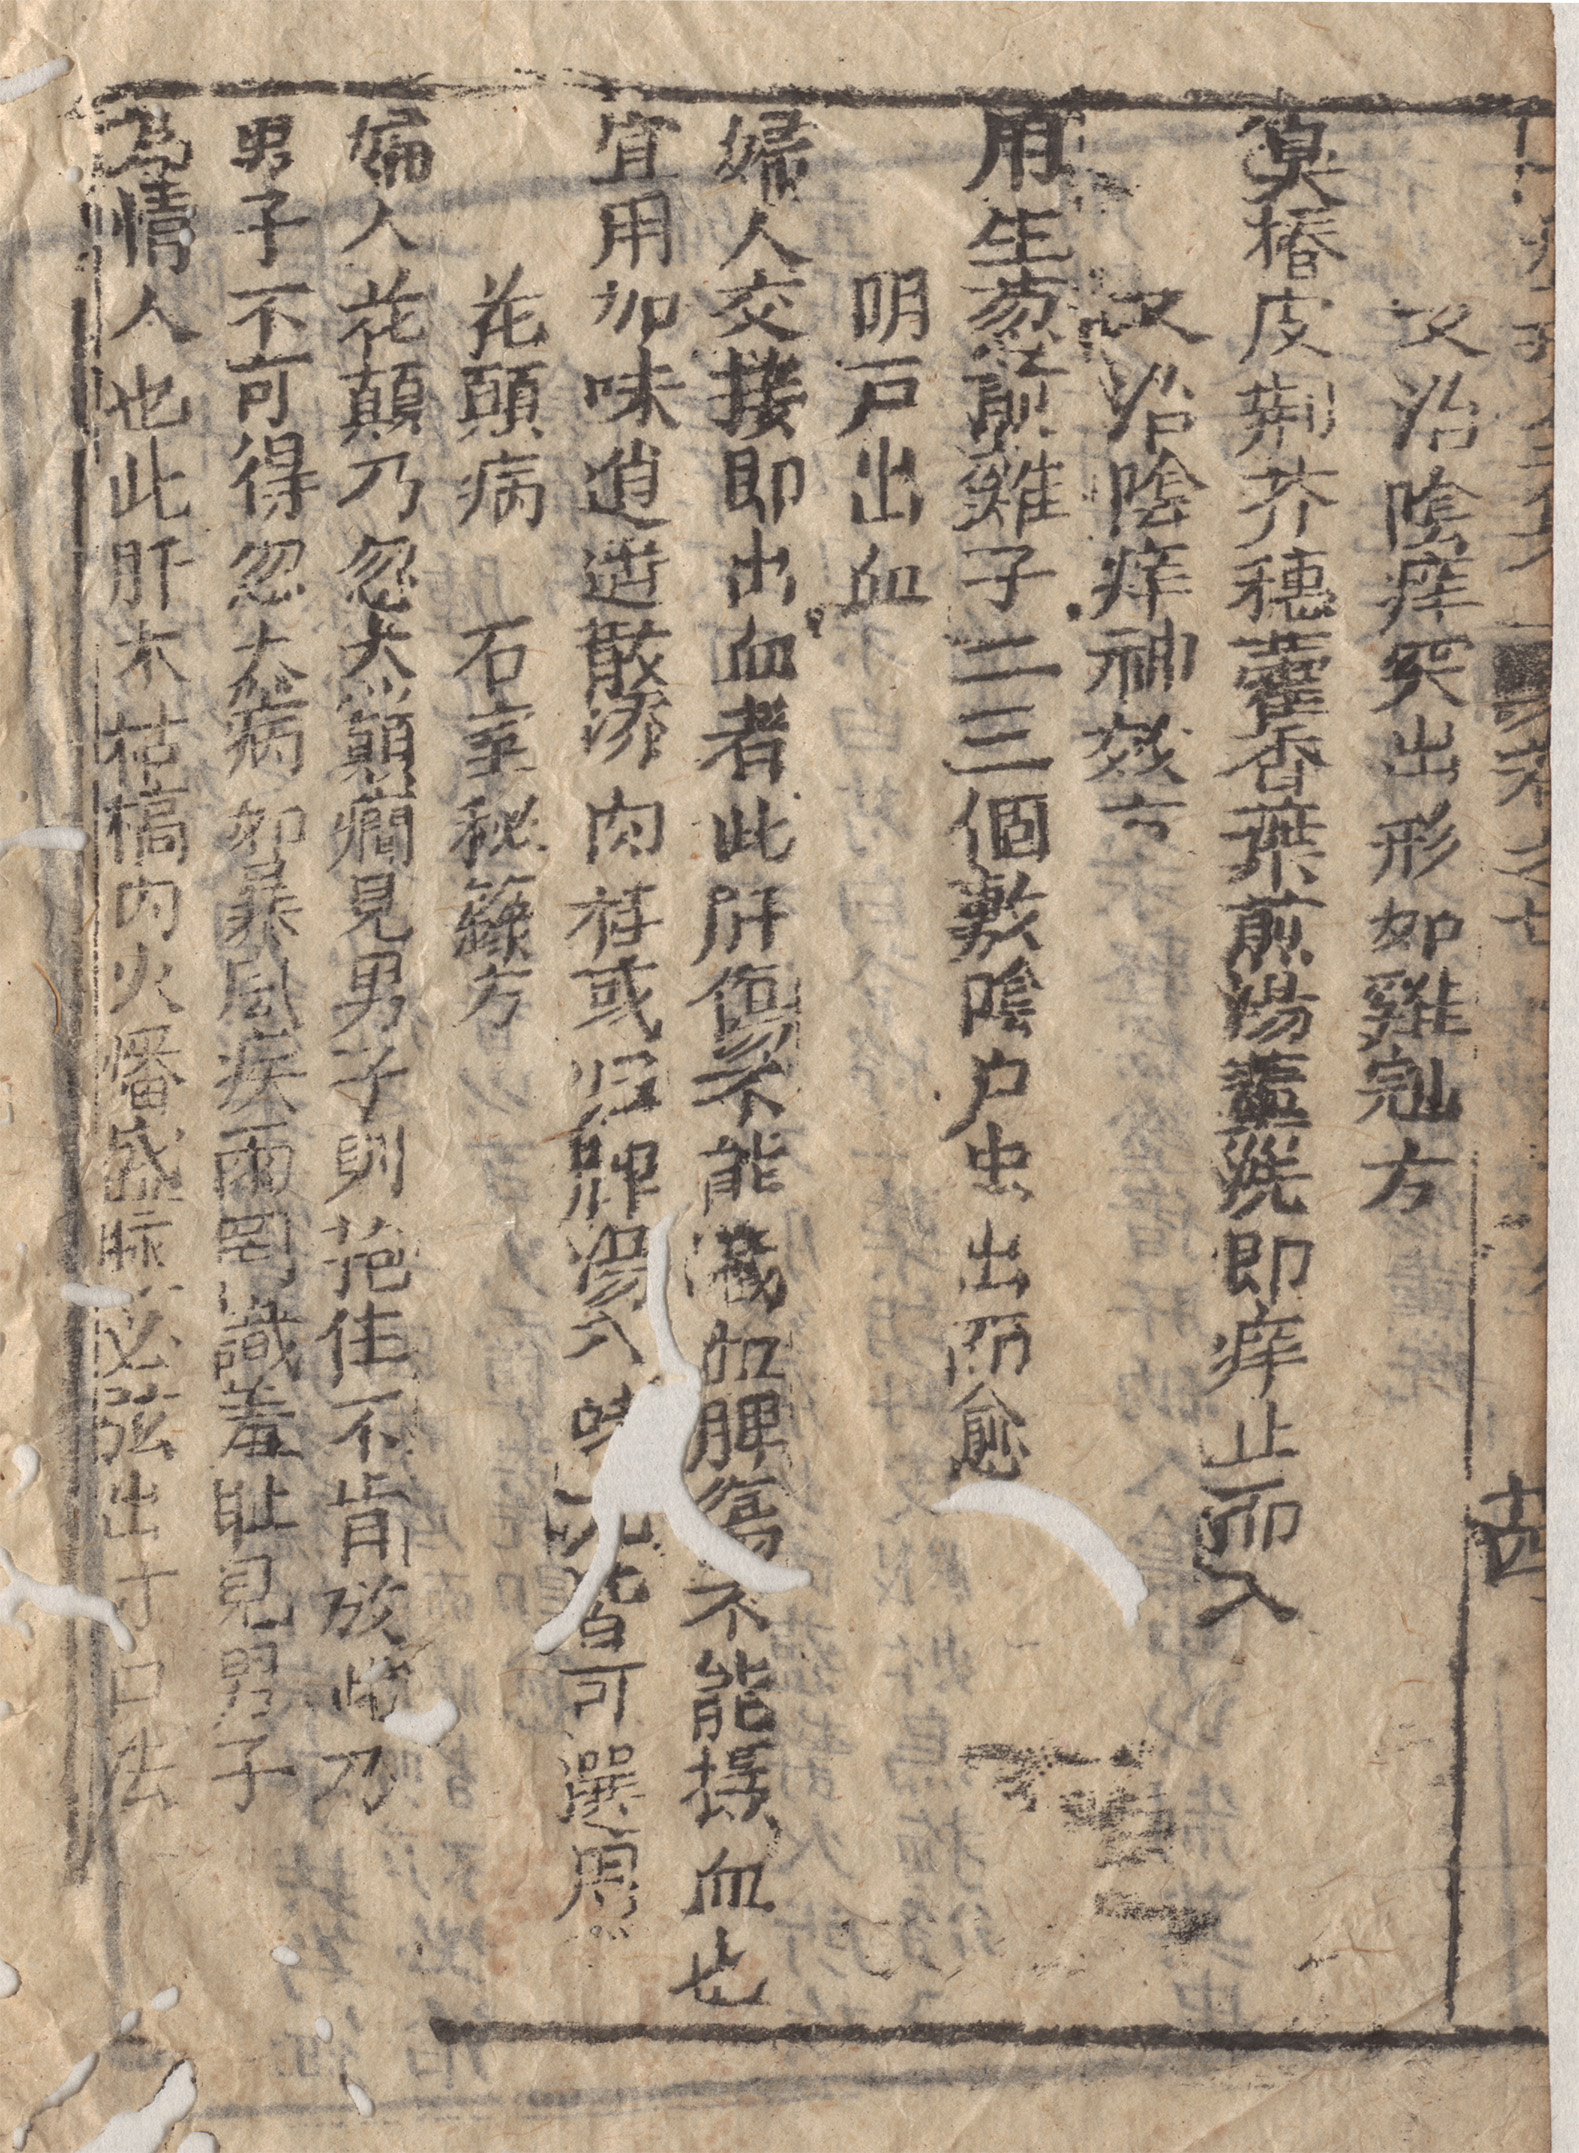 又治陰痒突出形如雞冠方
臭椿皮荆芥穗藿香葉煎湯薰洗即痒止而入
又治陰痒神效方
用生葱煎雞子二三個敷陰户虫出而愈
明户出血
婦人交接即出血者此肝傷不能藏血脾傷不能攝血也
宜用加味逍遥散添肉桂或归脾湯八味丸皆可選用
花顛病　石室秘籙方
婦人花顛乃忽犬顛癇見男子則抱住不肯放此乃
男子不可得忽犬病如暴風疾雨罔識羞耻見男子
爲情人也此肝木枯槁内火燔盛脉必弦出寸口法
十四